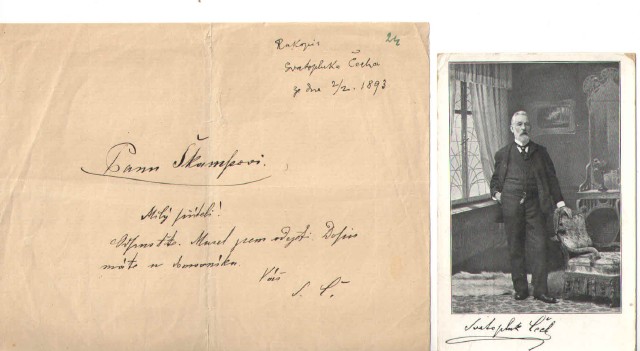 24
Rukopis
Svatopluka Čecha
ze dne 2/2. 1893
Panu Škampovi.
Milý příteli!
Odpusťte. Musel jsem odejeti. Dopis
máte u domovníka.
Váš
S. Č.
Svatopluk Čech